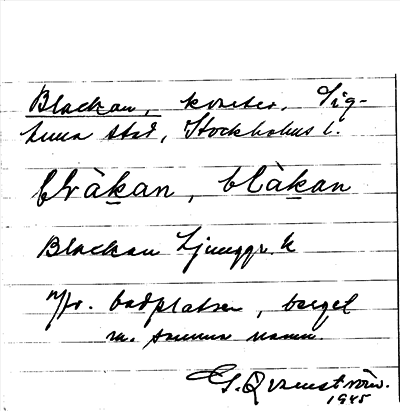 Blackan, kvarter, Sig-
tuna stad, Stockholms l.
blàkan, blàkan
Blackan Ljunggr. k
badplatsen, berget
m. samma namn.
E. S. Qvarnström
1945